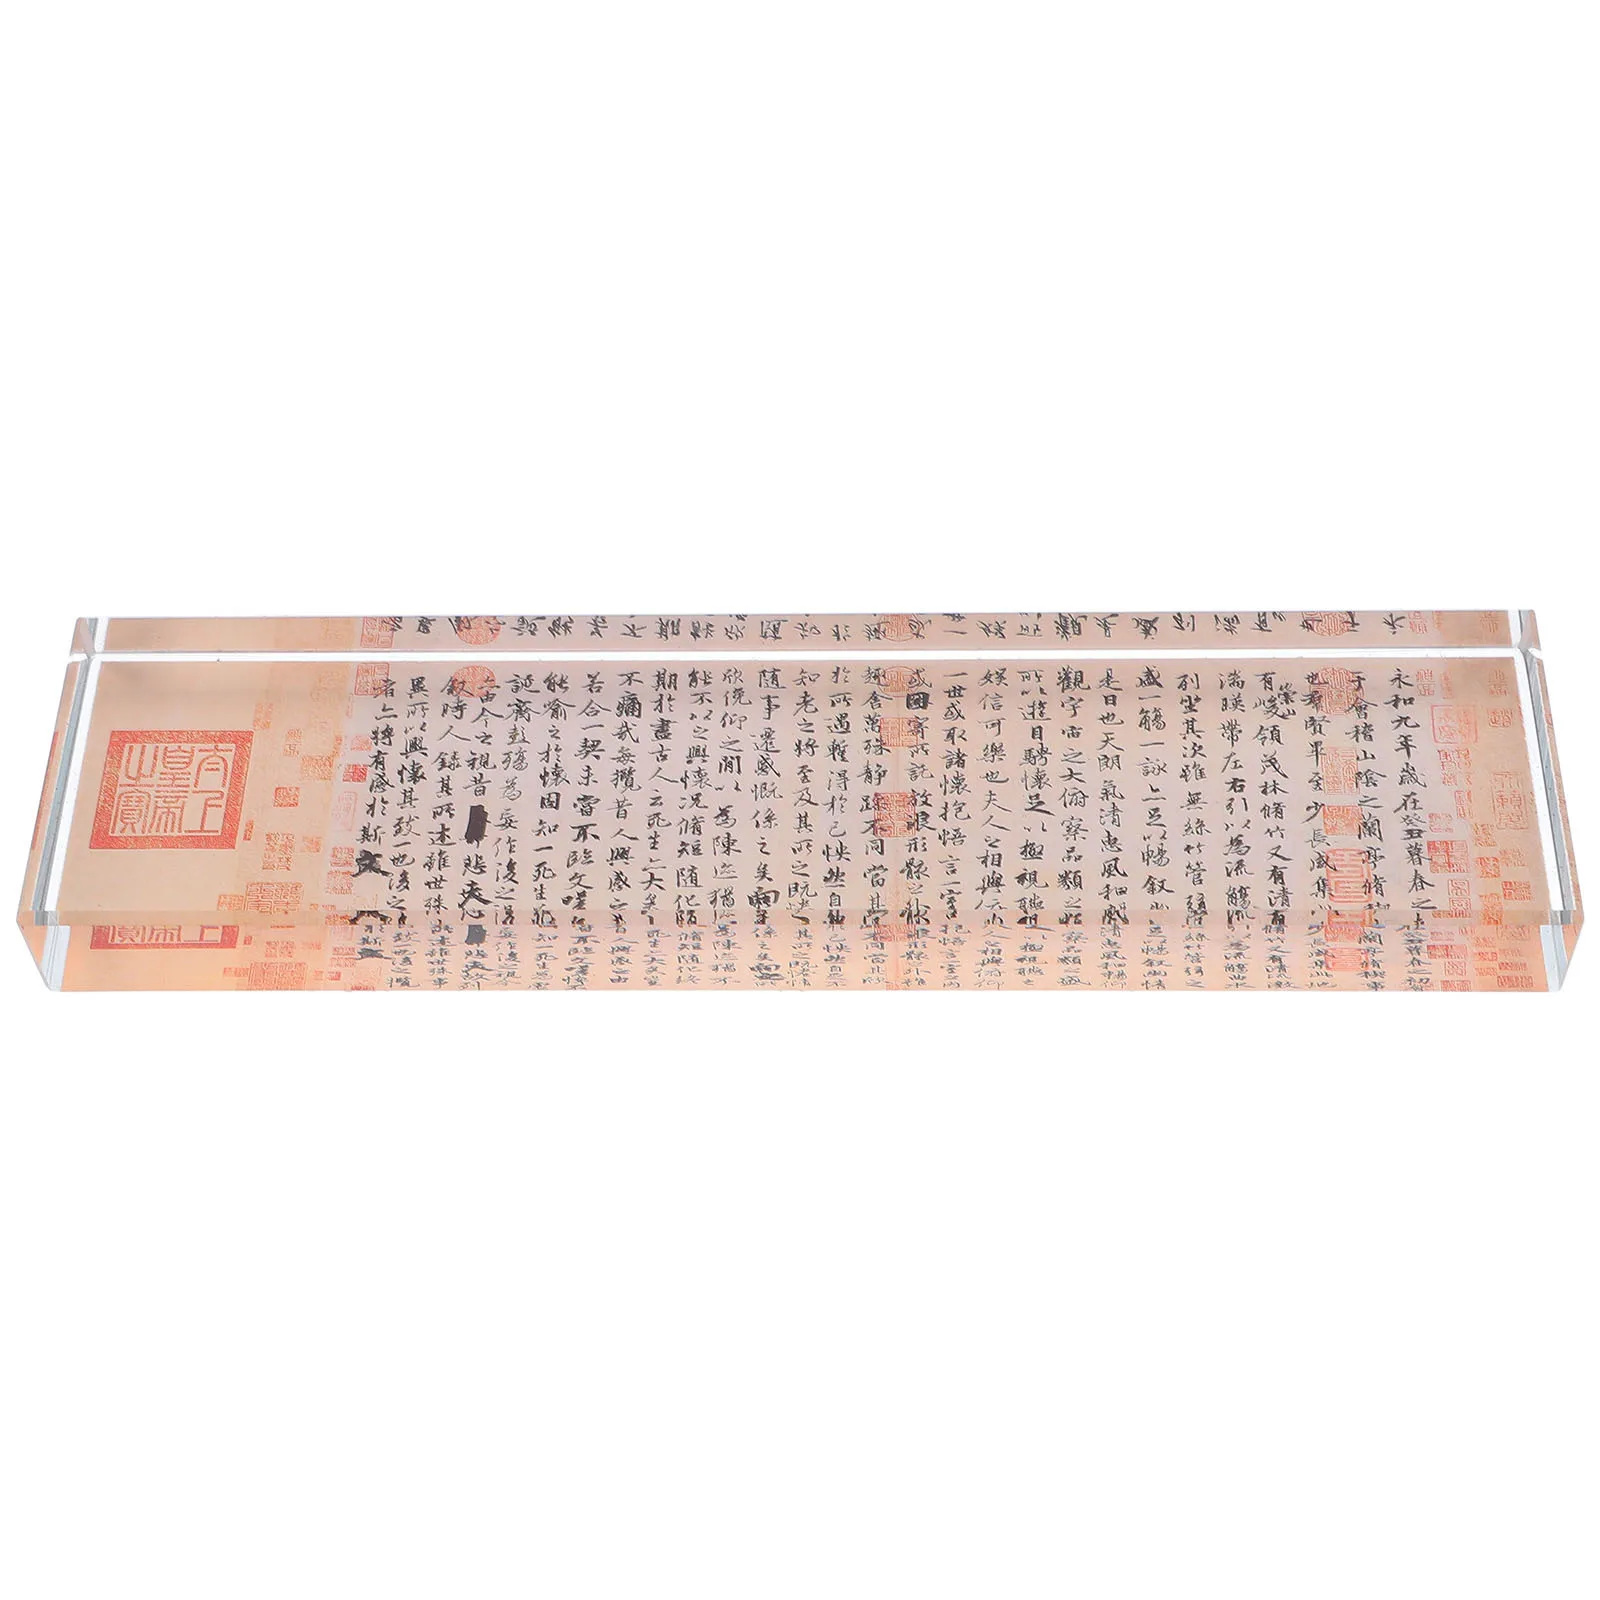 永和九年歲在癸丑暮春之初
于會稽山陰之蘭亭脩禊事
也羣賢畢至少長咸集此地
崇山
有峻領茂林脩竹又有清流激
湍暎帶左右引以為流觴曲水
列坐其次雖無絲竹管弦之
盛一觴一詠亦足以暢叙幽情
是日也天朗氣清惠風和暢仰
觀宇宙之大俯察品類之盛
所以遊目騁懷足以極視聽之
娛信可樂也夫人之相與俯仰
一世或取諸懷抱悟言一室之內
或因寄所託放浪形骸之外雖
趣舍萬殊静躁不同當其欣
於所遇暫得於己怏然自足不
知老之將至及其所之既惓情
隨事遷感慨係之矣向之所
欣俛仰之閒以為陳迹猶不
能不以之興懷况脩短隨化終
期於盡古人云死生亦大矣豈
不痛哉每攬昔人興感之由
若合一契未嘗不臨文嗟悼不
能喻之於懷固知一死生為虛
誕齊彭殤為妄作後之視今
亦由今之視昔悲夫故列
叙時人錄其所述雖世殊事
異所以興懷其致一也後之攬
者亦將有感於斯文
太上皇帝之寶